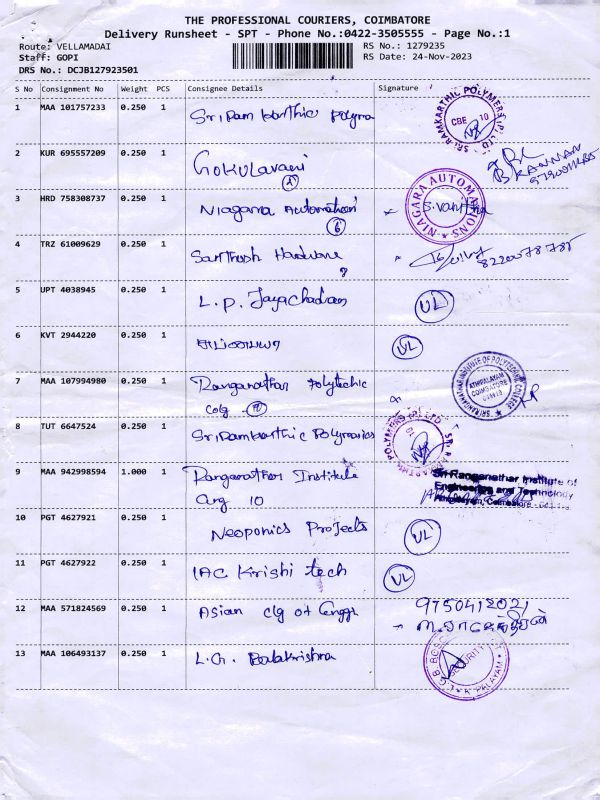 THE PROFESSIONAL COURIERS, COIMBATORE
Delivery Runsheet - SPT - Phone No.:0422-3505555 - Page No.:1
Route: VELLAMADAI RS No.: 1279235
Staff: GOPI RS Date: 24-Nov-2023
DRS No.: DCJB127923501
S No Consignment No Weight PCS Consignee Details Signature
1 MAA 101757233 0.250 1 Sri Ram karthic Polyma
CBE 10
2 KUR 695557209 0.250 1 Gokulavani
3 HRD 758308737 0.250 1 Niagara Automation
6
NIAGARA AUTOMATIONS
4 TRZ 61009629 0.250 1 Santhosh Hardware
5 UPT 4038945 0.250 1 L. P. Jayachadran UL
6 KVT 2944220 0.250 1 UL
7 MAA 107994980 0.250 1 Ranganathan Polytechic
colg
SRI RANGANATHAR INSTITUTE OF POLYTECHNIC COLLEGE
ATHIPALAYAM
COIMBATORE
8 TUT 6647524 0.250 1 Sri Ramkarthic Polymaics
9 MAA 942998594 1.000 1 Ranganathan Institute
10
Sri Ranganathar Institute of
Engineering and Technology
10 PGT 4627921 0.250 1 Neoponics Projects UL
11 PGT 4627922 0.250 1 IAC Krishi tech UL
12 MAA 571824569 0.250 1 Asian clg of Engge 9750412021
13 MAA 106493137 0.250 1 L.G. Balakrishna
SECURITY